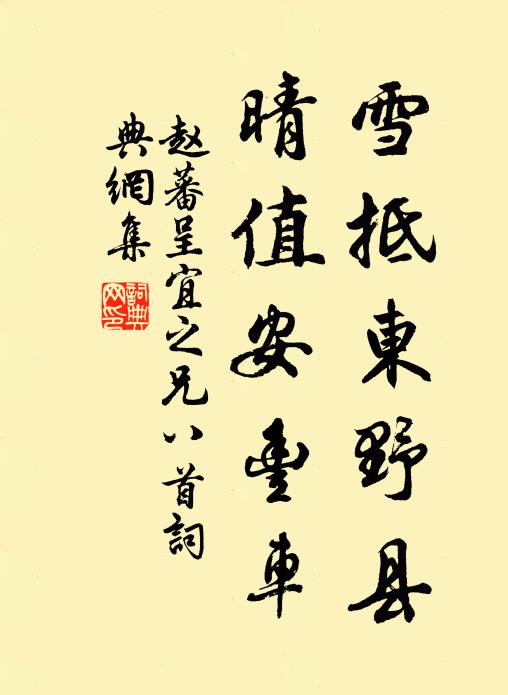 雪抵東野县
晴值安豊車
赵蕃呈宜之兄八首詞
典網集
詞典网印